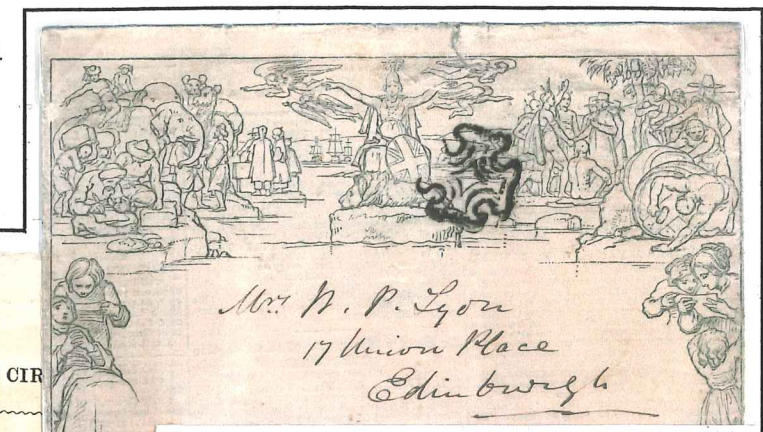 Mrs W. P. Lyon
17 Union Place
Edinburgh
CIR